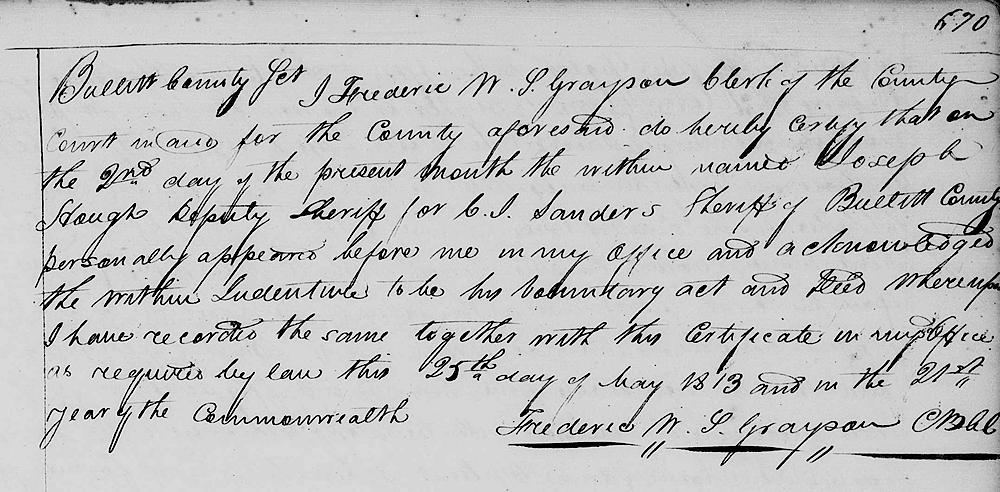 670
Bullitt County Sct I Frederic W. S. Grayson Clerk of the County
Court in and for the County aforesaid do hereby certify that on
the 2nd day of the present month the within named Joseph
Hough Deputy Sheriff for C. J. Sanders Sheriff of Bullitt County
personally appeared before me in my office and acknowledged
the within Indenture to be his voluntary act and Deed Whereupon
I have recorded the same together with this Certificate in my Office
as required by law this 25th day of May 1813 and in the 21st
year of the Commonwealth
Frederic W. S. Grayson